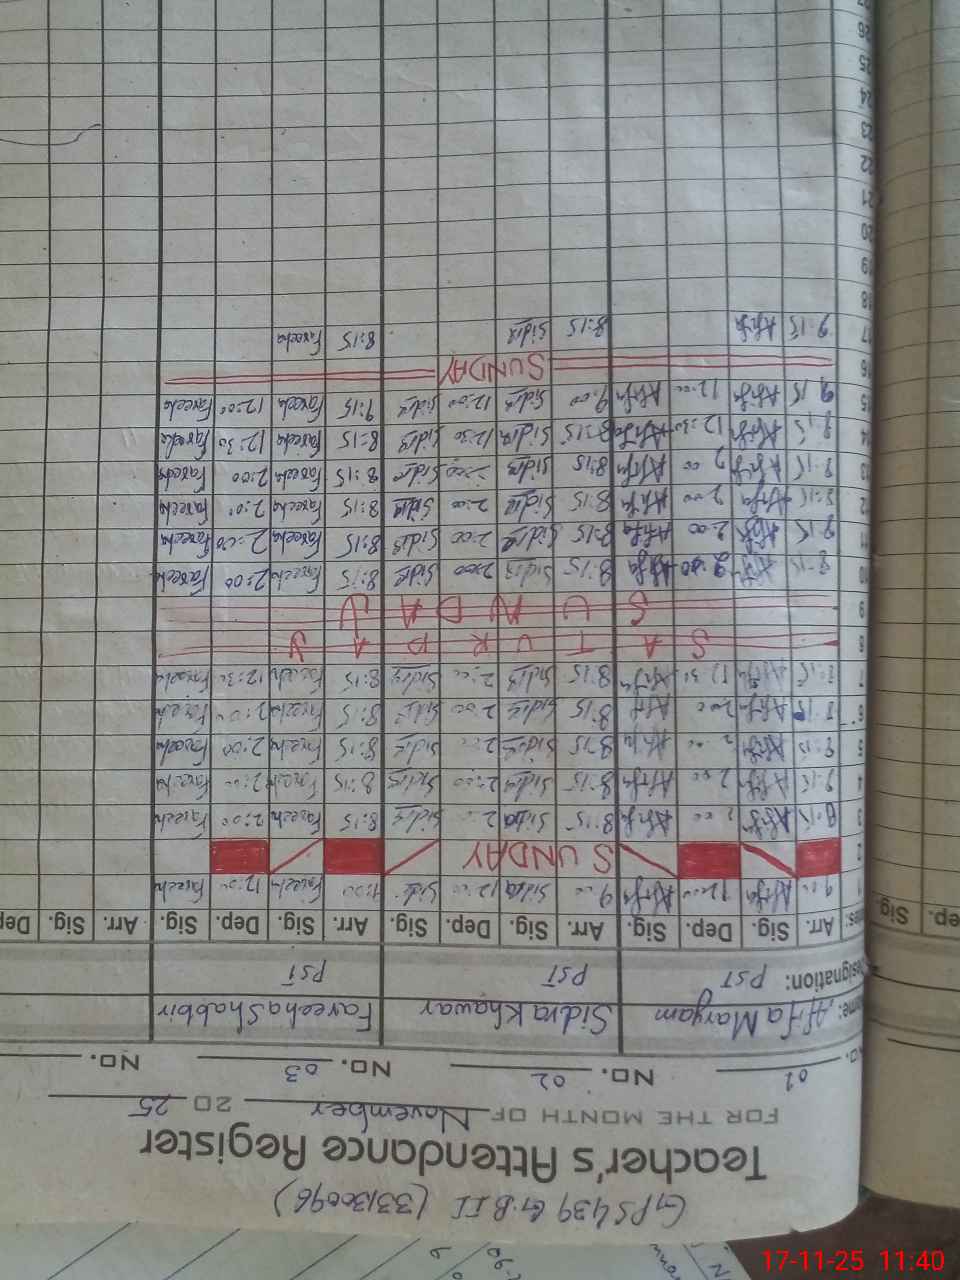 GPS 439 G.B II (33130096)
Teacher's Attendance Register
FOR THE MONTH OF November 20 25
No. 01 No. 02 No. 03 No.
Name: Afifa Maryam Sidra Khawar Fareeha Shabbir
Designation: PST PST PST
Dates: Arr. Sig. Dep. Sig. Arr. Sig. Dep. Sig. Arr. Sig. Dep. Sig. Arr. Sig. Dep.
1 9:00 Afifa 12:00 Afifa 9:00 Sidra 12:00 Sidra 9:00 Fareeha 12:00 Fareeha
2 SUNDAY
3 8:15 Afifa 2:00 Afifa 8:15 Sidra 2:00 Sidra 8:15 Fareeha 2:00 Fareeha
4 8:15 Afifa 2:00 Afifa 8:15 Sidra 2:00 Sidra 8:15 Fareeha 2:00 Fareeha
5 8:15 Afifa 2:00 Afifa 8:15 Sidra 2:00 Sidra 8:15 Fareeha 2:00 Fareeha
6 8:15 Afifa 2:00 Afifa 8:15 Sidra 2:00 Sidra 8:15 Fareeha 2:00 Fareeha
7 8:15 Afifa 12:30 Afifa 8:15 Sidra Sidra 8:15 Fareeha 12:30 Fareeha
8 SATURDAY
9 SUNDAY
10 8:15 Afifa 2:00 Afifa 8:15 Sidra 2:00 Sidra 8:15 Fareeha 2:00 Fareeha
11 8:15 Afifa 2:00 Afifa 8:15 Sidra 2:00 Sidra 8:15 Fareeha 2:00 Fareeha
12 8:15 Afifa 2:00 Afifa 8:15 Sidra 2:00 Sidra 8:15 Fareeha 2:00 Fareeha
13 8:15 Afifa 2:00 Afifa 8:15 Sidra 2:00 Sidra 8:15 Fareeha 2:00 Fareeha
14 8:15 Afifa 12:30 Afifa 8:15 Sidra 12:30 Sidra 8:15 Fareeha 12:30 Fareeha
15 9:15 Afifa 12:00 Afifa 9:00 Sidra 12:00 Sidra 9:15 Fareeha 12:00 Fareeha
16 SUNDAY
17 8:15 Afifa 8:15 Sidra 8:15 Fareeha
18
19
20
21
22
23
24
25
26
Sig. Dep.
17-11-25 11:40